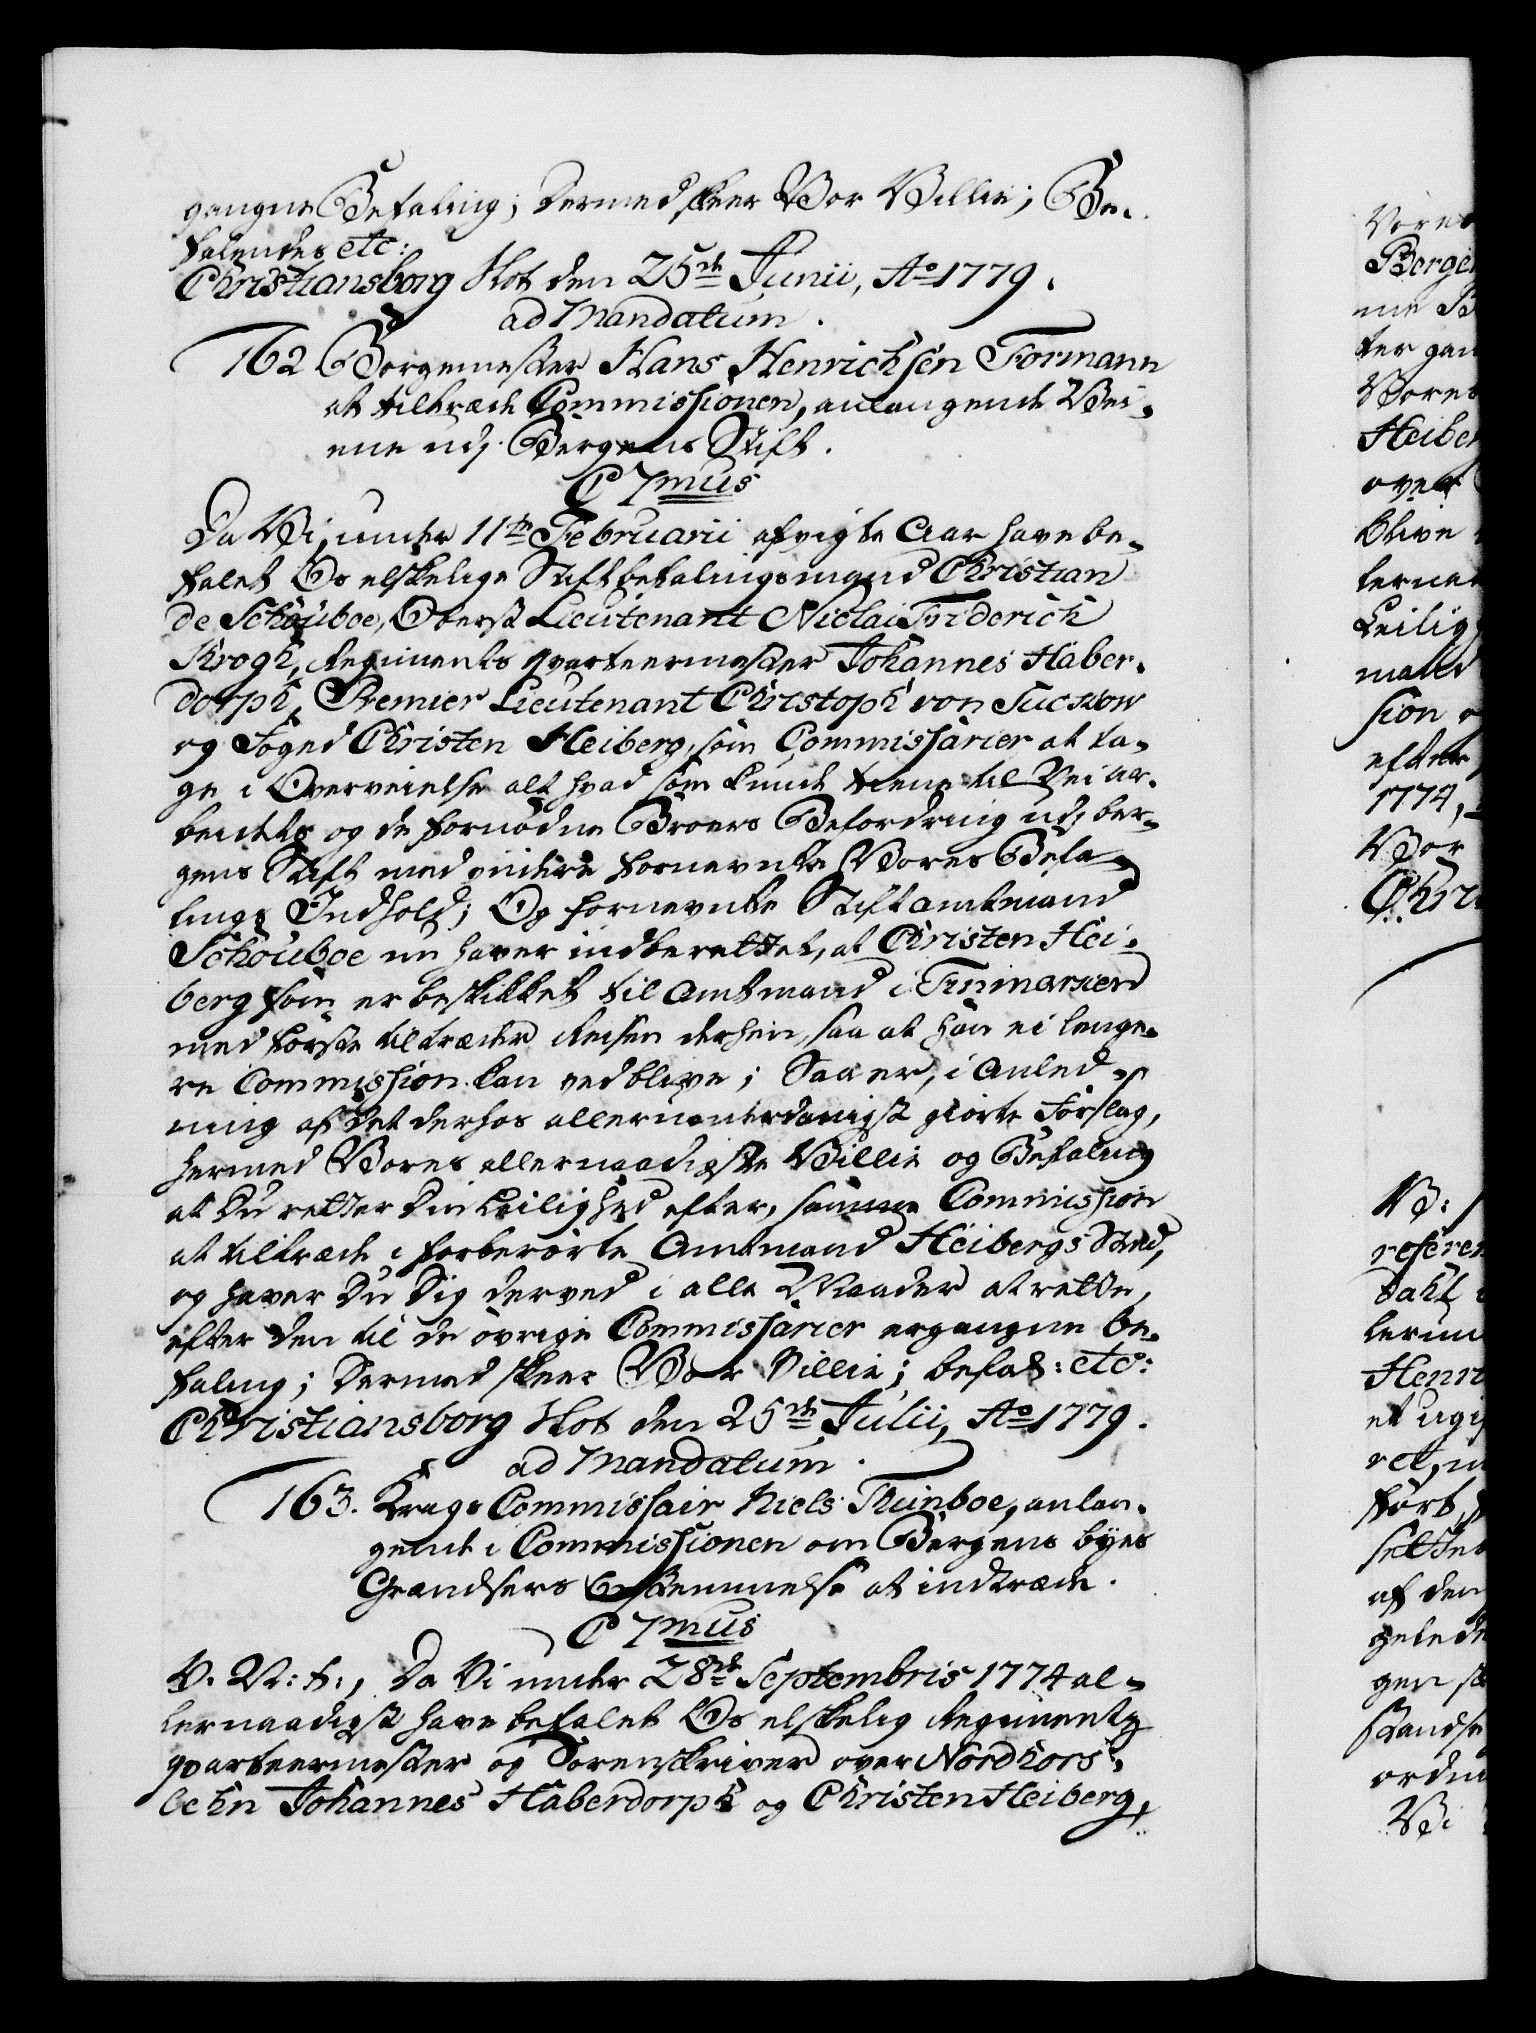 gangne Befaling; Dermed skeer Vor Villie; Be-
falendes etc:
Christiansborg Slot den 25de Junii, Ao 1779.
ad Mandatum.
162 Borgemester Hans Henrichsen Formann
at tiltræde Commissionen, anlangende Vei-
ene udj Bergens Stift.
C 7mus
Da Vi, under 11te Februarii afvigte Aar have be-
falet Os elskelige Stiftbefalingsmand Christian
de Schouboe, Oberst Lieutenant Nicolai Friderich
Krogh, Regiments Qvarteermester Johannes Haber-
dorph, Premier Lieutenant Christoph von Suckow
og Foged Christen Heiberg, som Commissarier at ta-
ge i Overveielse alt hvad som kunde tiene til Vei ar-
beidets og de fornødne Broers Befordring udj Ber-
gens Stift med videre fornevnte Vores Befa-
lings Indhold; Og fornevnte Stiftamtmand
Schouboe nu haver indberettet, at Christen Hei-
berg som er beskikket til Amtmand i Finmarken
med første tiltræder Reisen derhen, saa at han ei lenge-
re Commission kan vedblive; Saa er, i Anled-
ning af det derhos allerunderdanigst giorte Forslag,
hermed Vores allernaadigste Villie og Befaling
at Du retter Din Leilighed efter, samme Commission
at tiltræde i forberørte Amtmand Heibergs Sted,
og haver Du Dig derved i alle Maader at rette,
efter den til de øvrige Commissarier ergangne Be-
faling; Dermed skeer Vor Villie; Befal: etc:
Christiansborg Slot den 25de Julii, Ao 1779.
ad Mandatum.
163. Krags Commissair Niels Thunboe, anlan-
gende i Commissionen om Bergens Byes
Grændsers Bestemmelse at indtræde.
C 7mus
V. V: t:, Da Vi under 28de Septembris 1774 al-
lernaadigst have befalet Os elskelig Regiments
qvarteermester og Sorenskriver over Nordhors-
lehn Johannes Haberdorph og Christen Heiberg,
Vores
Bergen
ne B
ter gan
Vores
Heiber
over
blive
Leilig
sion
efter
1774,
Vor
Chri
V:
referen
Dahl
Henri
et
ret,
ført,
af den
gen
ordn
Vi